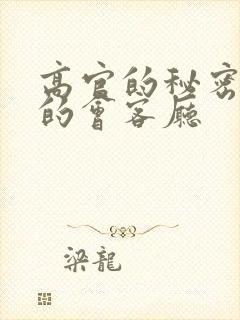 高官的秘密
的會客廳
梁龍